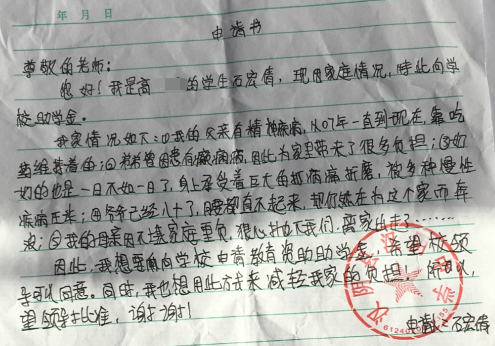 年 月 日
申请书
尊敬的老师:
您好!我是高 的学生石宏倩,现因家庭情况,特此向学
校助学金。
我家情况如下:①我的父亲有精神疾病,从07年一直到现在,靠吃
药维持着的;②叔叔曾因患有癫痫病,因此为家里带来了很多负担;③奶
奶的也是一日不如一日了,身上承受着巨大的病痛折磨,被多种慢性
疾病压垮;④爷爷已经八十了,腰都直不起来,却仍然在为这个家而奔
波;⑤我的母亲因不堪家庭重负,狠心抛下我们,离家出走了……
因此,我想要向学校申请教育资助助学金,希望校领
导可以同意。同时,我也想用此方式来减轻我家的负担,所以,
望领导批准,谢谢!
申请人:石宏倩